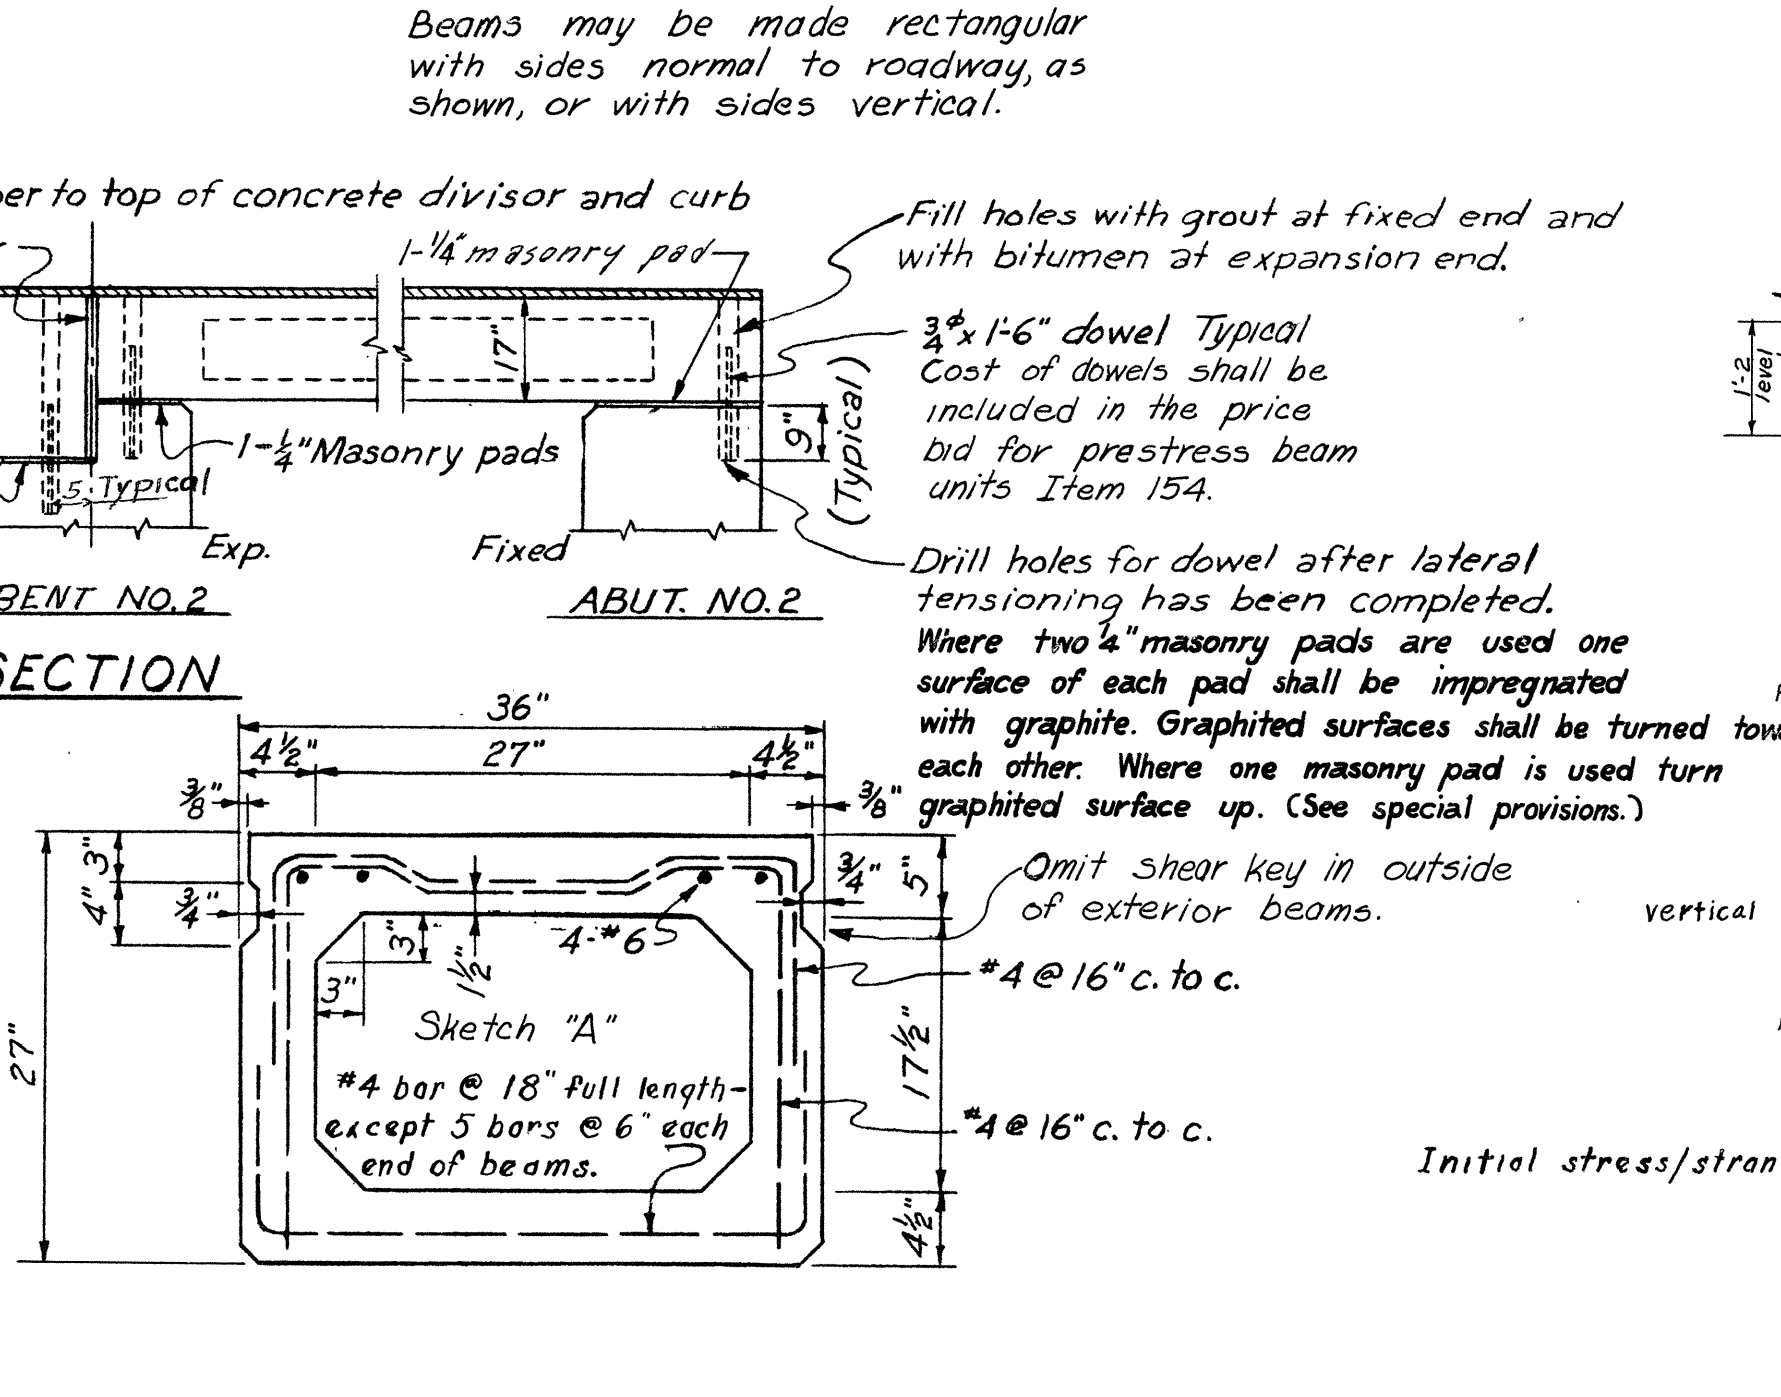 Beams may be made rectangular
with sides normal to roadway, as
shown, or with sides vertical.
to top of concrete divisor and curb
1-1/4" masonry pad
Fill holes with grout at fixed end and
with bitumen at expansion end.
17"
3/4 ϕ x 1'-6" dowel Typical
Cost of dowels shall be
included in the price
bid for prestress beam
units Item 154.
1'-2
level
9"
(Typical)
1-1/4" Masonry pads
5. Typical
Exp.
Fixed
BENT NO. 2
ABUT. NO. 2
Drill holes for dowel after lateral
tensioning has been completed.
Where two 1/4" masonry pads are used one
surface of each pad shall be impregnated
with graphite. Graphited surfaces shall be turned
each other. Where one masonry pad is used turn
graphited surface up. (See special provisions.)
SECTION
36"
4 1/2" 27" 4 1/2"
3/8" 3/8"
3"
4"
3/4" 3/4"
5"
Omit shear key in outside
of exterior beams.
vertical
3"
1 1/2"
4-#6
3"
#4 @ 16" c. to c.
Sketch "A"
27"
17 1/2"
#4 bar @ 18" full length-
except 5 bars @ 6" each
end of beams.
#4 @ 16" c. to c.
Initial stress/stran
4 1/2"